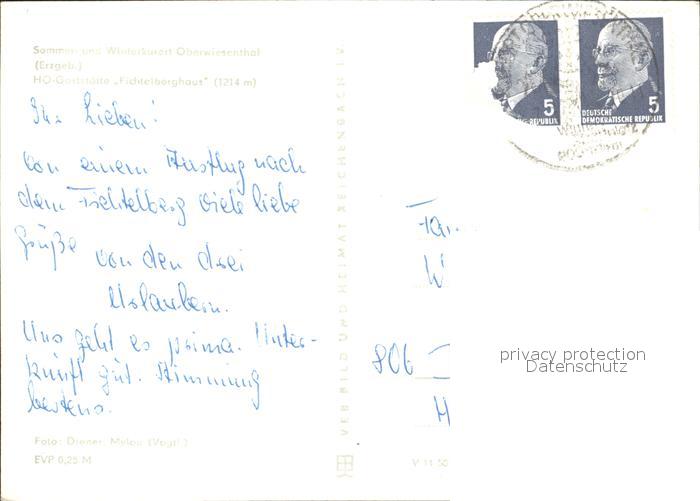 Sommer- und Winterkurort Oberwiesenthal
(Erzgeb.)
HO-Gaststätte „Fichtelberghaus" (1214 m)
Ihr Lieben!
Von einem Ausflug nach
dem Fichtelberg viele liebe
Grüße von den drei
Urlaubern.
Uns geht es prima. Unter-
kunft gut. Stimmung
bestens.
Foto: Diener, Mylau (Vogtl.)
EVP 0,25 M
VEB BILD UND HEIMAT REICHENBACH i. V.
V 11 50
5
NG REPUBLIK
5
DEUTSCHE
DEMOKRATISCHE REPUBLIK
Fam.
W
806
H
privacy protection
Datenschutz